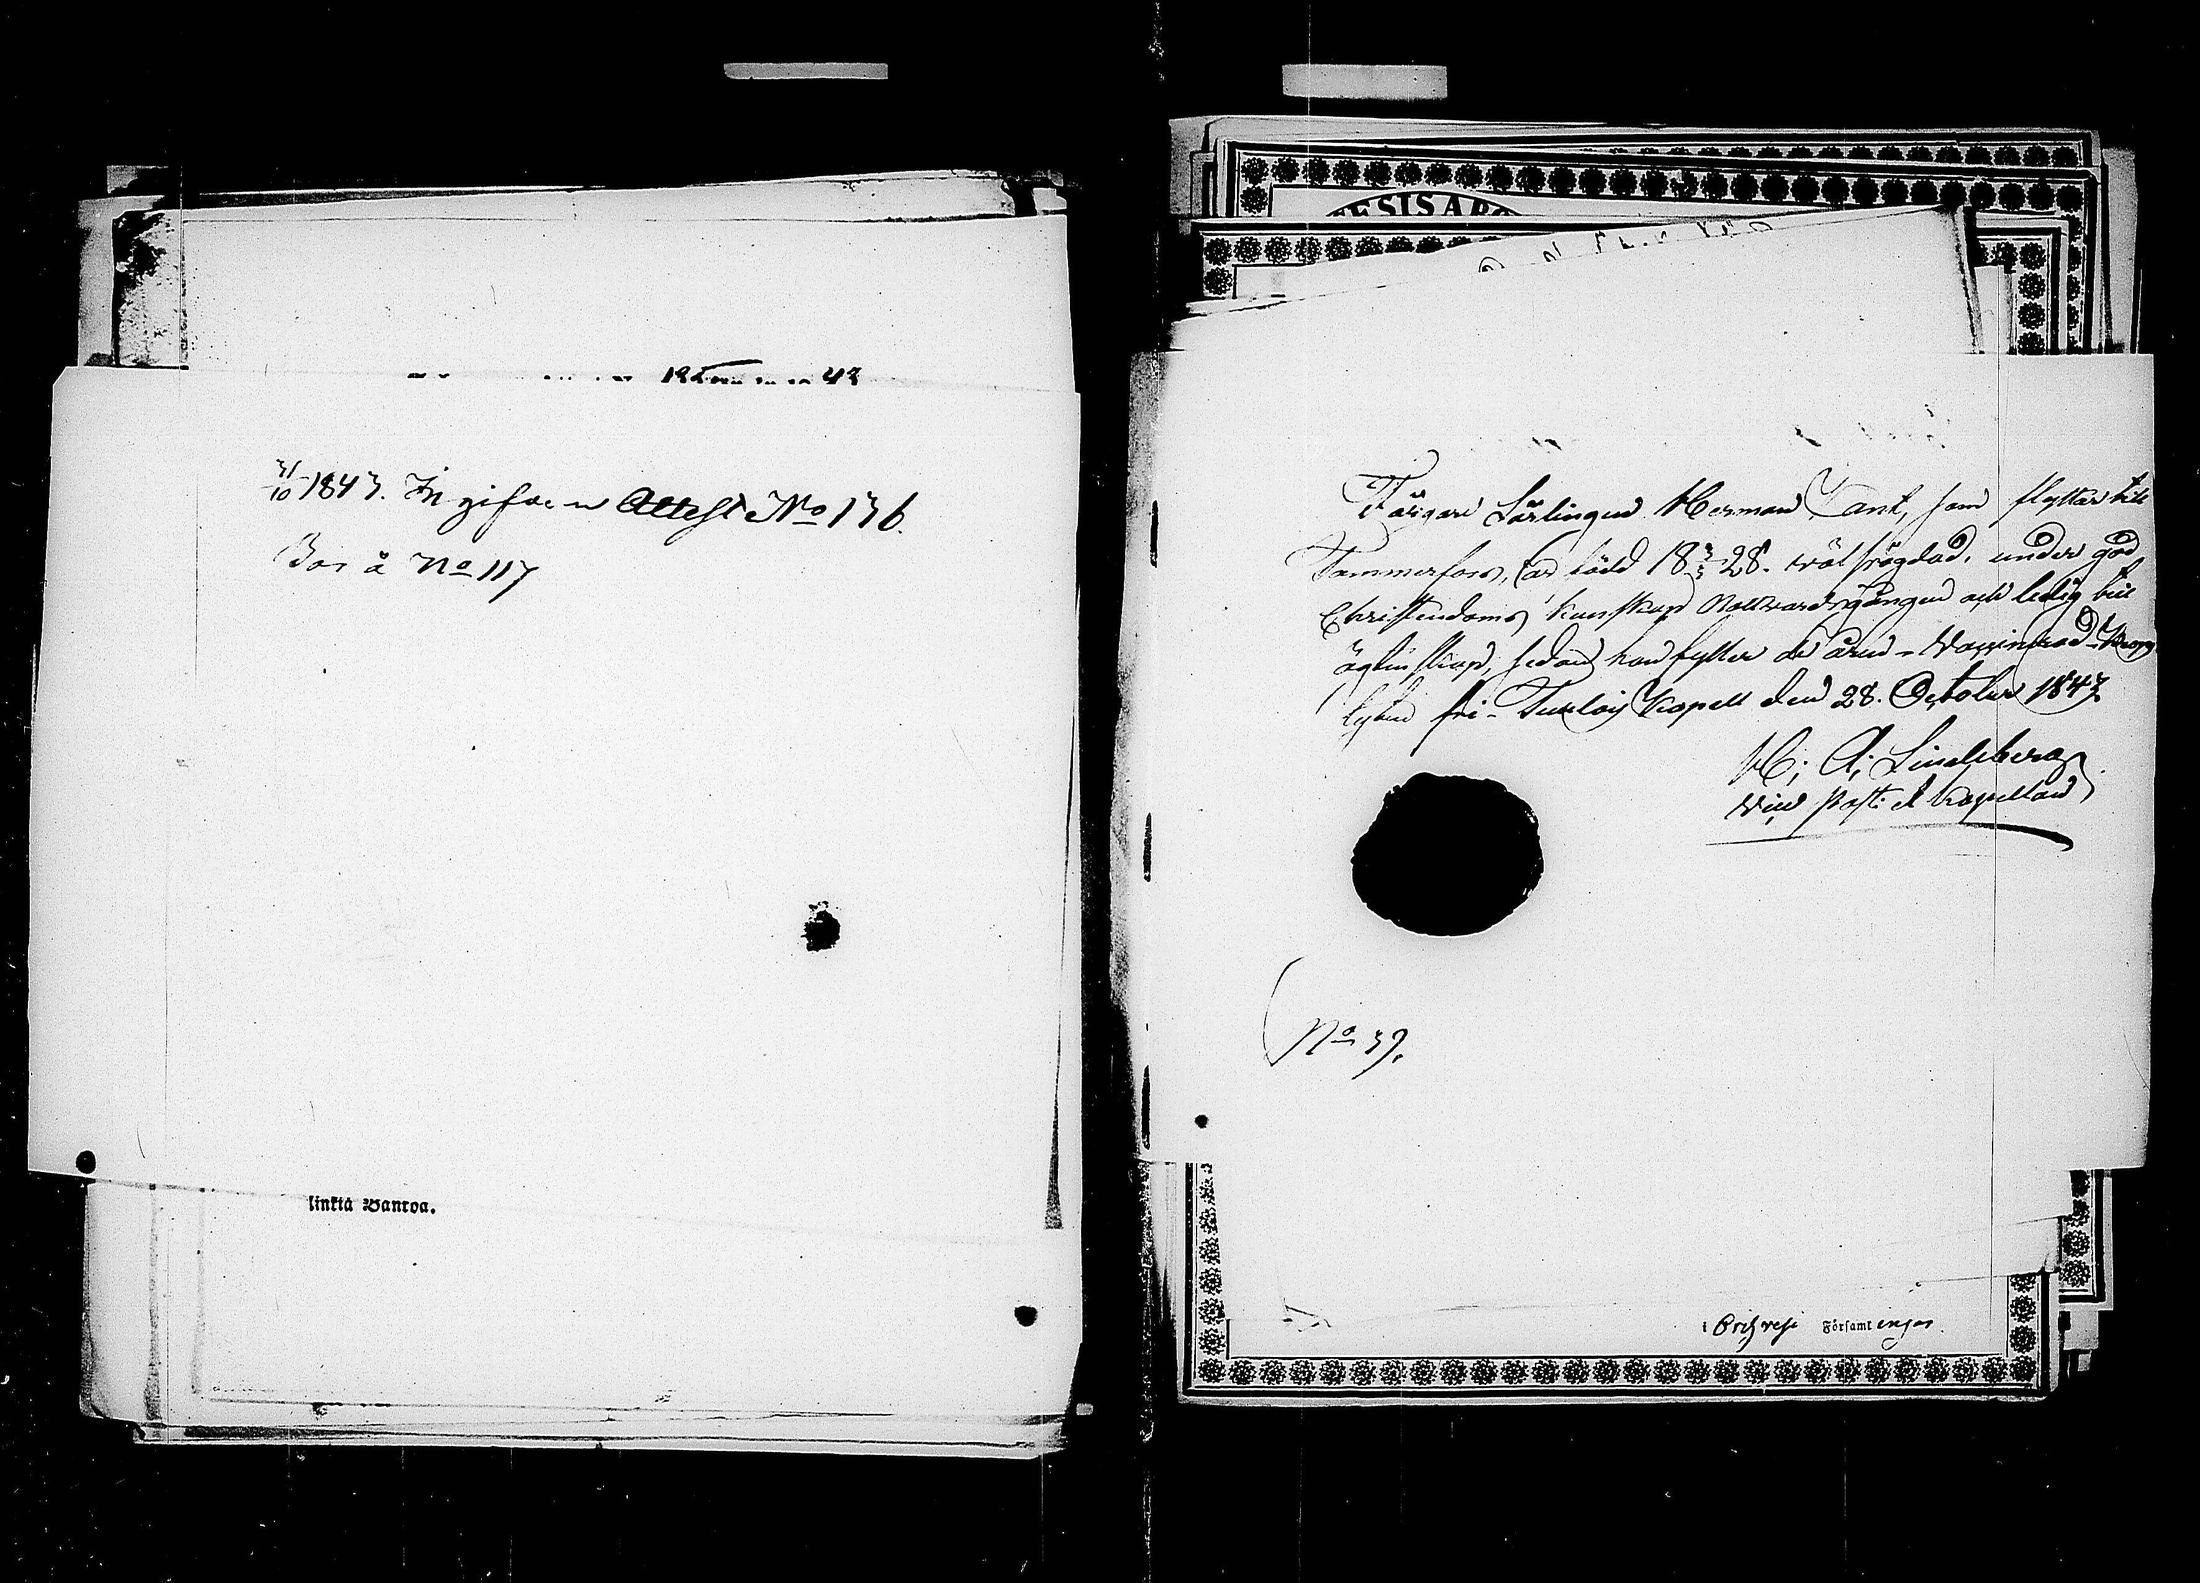 31/10 1843. Ingifven Attest No 136.
Bor å No 117
linkia Vantva.
Färgare Lärlingen Herman Tant, som flyttar till
Tammerfors, är född 18 3/3 28. wälfrägdad, under god
Christendoms kunskap Nattvardsgången och ledig till
ägtenskap, sedan han fyller de åren - Vaccinerad - Kropp
lyten fri - Teerlois Kapell den 28. October 1843.
H; A; Lindeberg
Vice Past: et Kapellan
No 39.
i Församlingar.